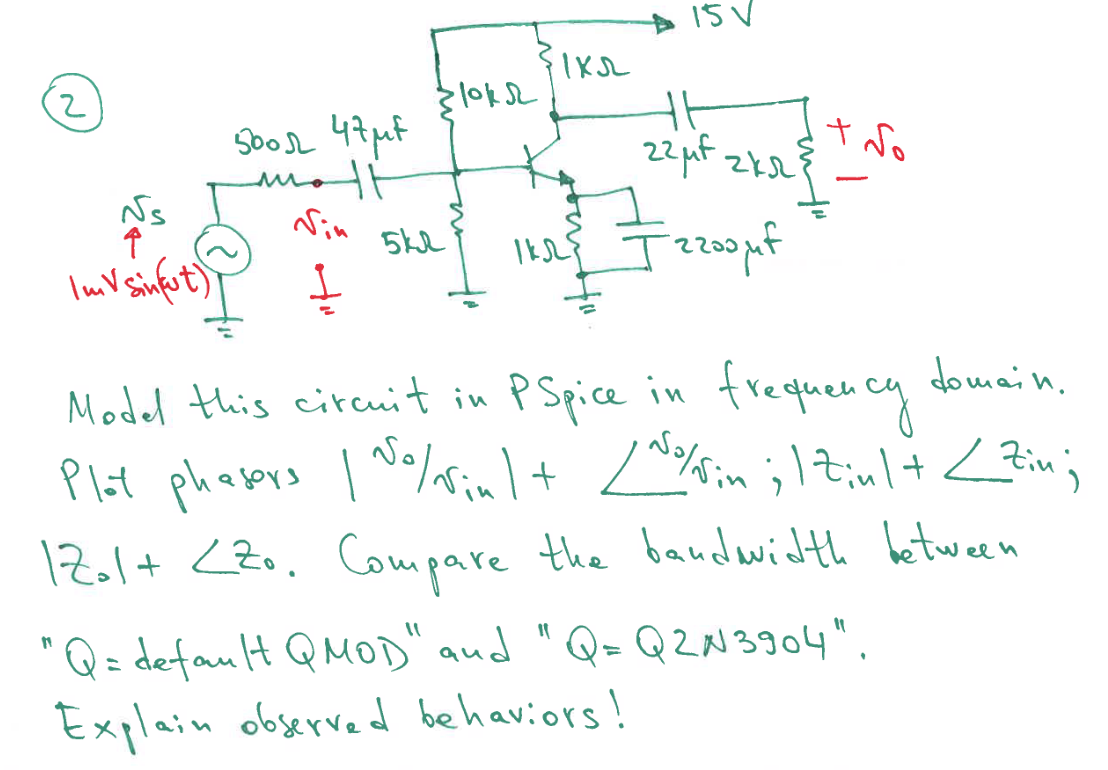 15V
1kΩ
2
10kΩ
500Ω 47μf
22μf 2kΩ + vo −
vs
vin
5kΩ
1kΩ
2200μf
1mV sin(ωt)
Model this circuit in PSpice in frequency domain.
Plot phasors |vo/vin| + ∠vo/vin ; |Zin| + ∠Zin ;
|Zo| + ∠Zo. Compare the bandwidth between
"Q=default QMOD" and "Q=Q2N3904".
Explain observed behaviors!